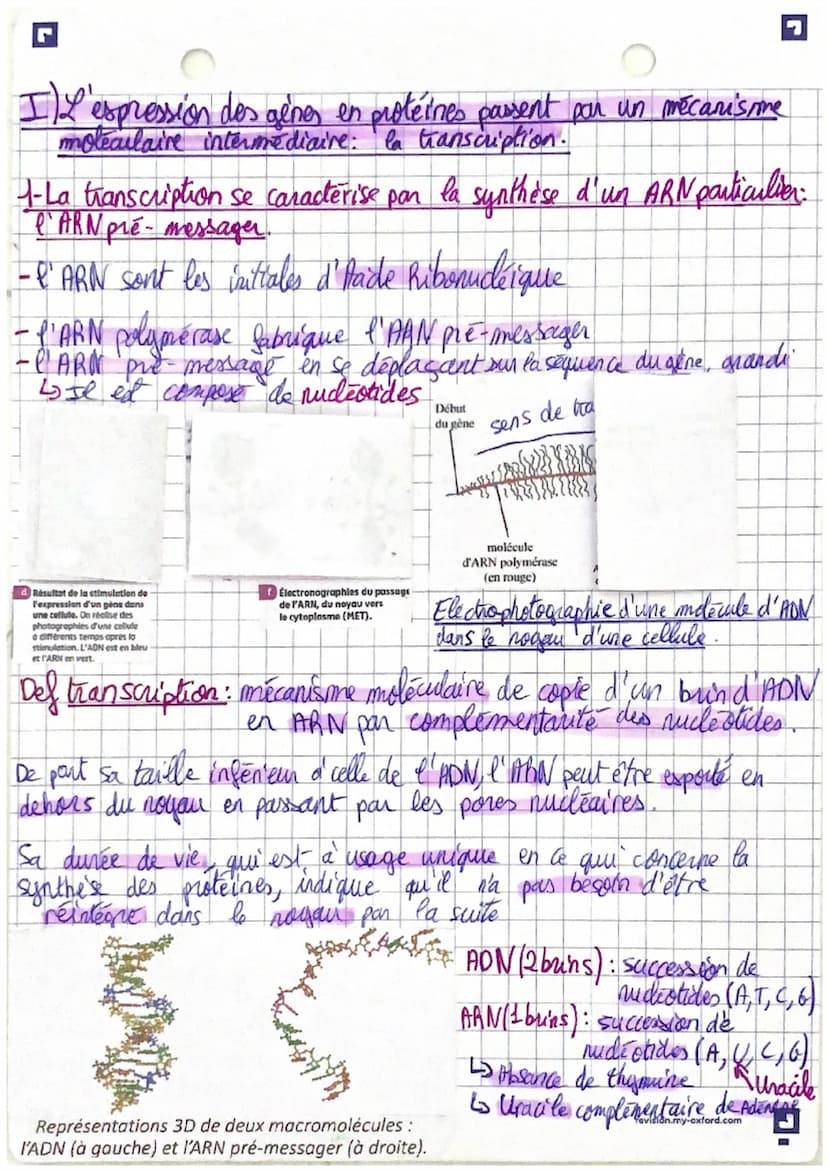 I) L'expression des gènes en protéines passent par un mécanisme
moléculaire intermédiaire: la transcription.
1-La transcription se caractérise par la synthèse d'un ARN particulier:
l'ARN pré-messager.
- l'ARN sont les initiales d'Acide Ribonucléique
- l'ARN polymérase fabrique l'ARN pré-messager
- l'ARN pré-messagé en se déplaçant sur la séquence du gène, grandi
↳ Il est composé de nucléotides
Début
du gène
sens de tra
molécule
d'ARN polymérase
(en rouge)
d Résultat de la stimulation de
l'expression d'un gène dans
une cellule. On réalise des
photographies d'une cellule
à différents temps après la
stimulation. L'ADN est en bleu
et l'ARN en vert.
f Électronographies du passage
de l'ARN, du noyau vers
le cytoplasme (MET).
Electrophotographie d'une molécule d'ADN
dans le noyau d'une cellule.
Def transcription: mécanisme moléculaire de copie d'un brin d'ADN
en ARN par complémentarité des nucléotides.
De part sa taille inférieur à celle de l'ADN, l'ARN peut être exporté en
dehors du noyau en passant par les pores nucléaires.
Sa durée de vie, qui est à usage unique en ce qui concerne la
synthèse des protéines, indique qu'il n'a pas besoin d'être
réintégré dans le noyau par la suite
ADN (2 brins) : succession de
nucléotides (A, T, C, G)
ARN (1 brins) : succession de
nucléotides (A, U, C, G)
Uracile
↳ Absance de thymine
↳ Uracile complémentaire de Adénine
revision.my-oxford.com
Représentations 3D de deux macromolécules :
l'ADN (à gauche) et l'ARN pré-messager (à droite).